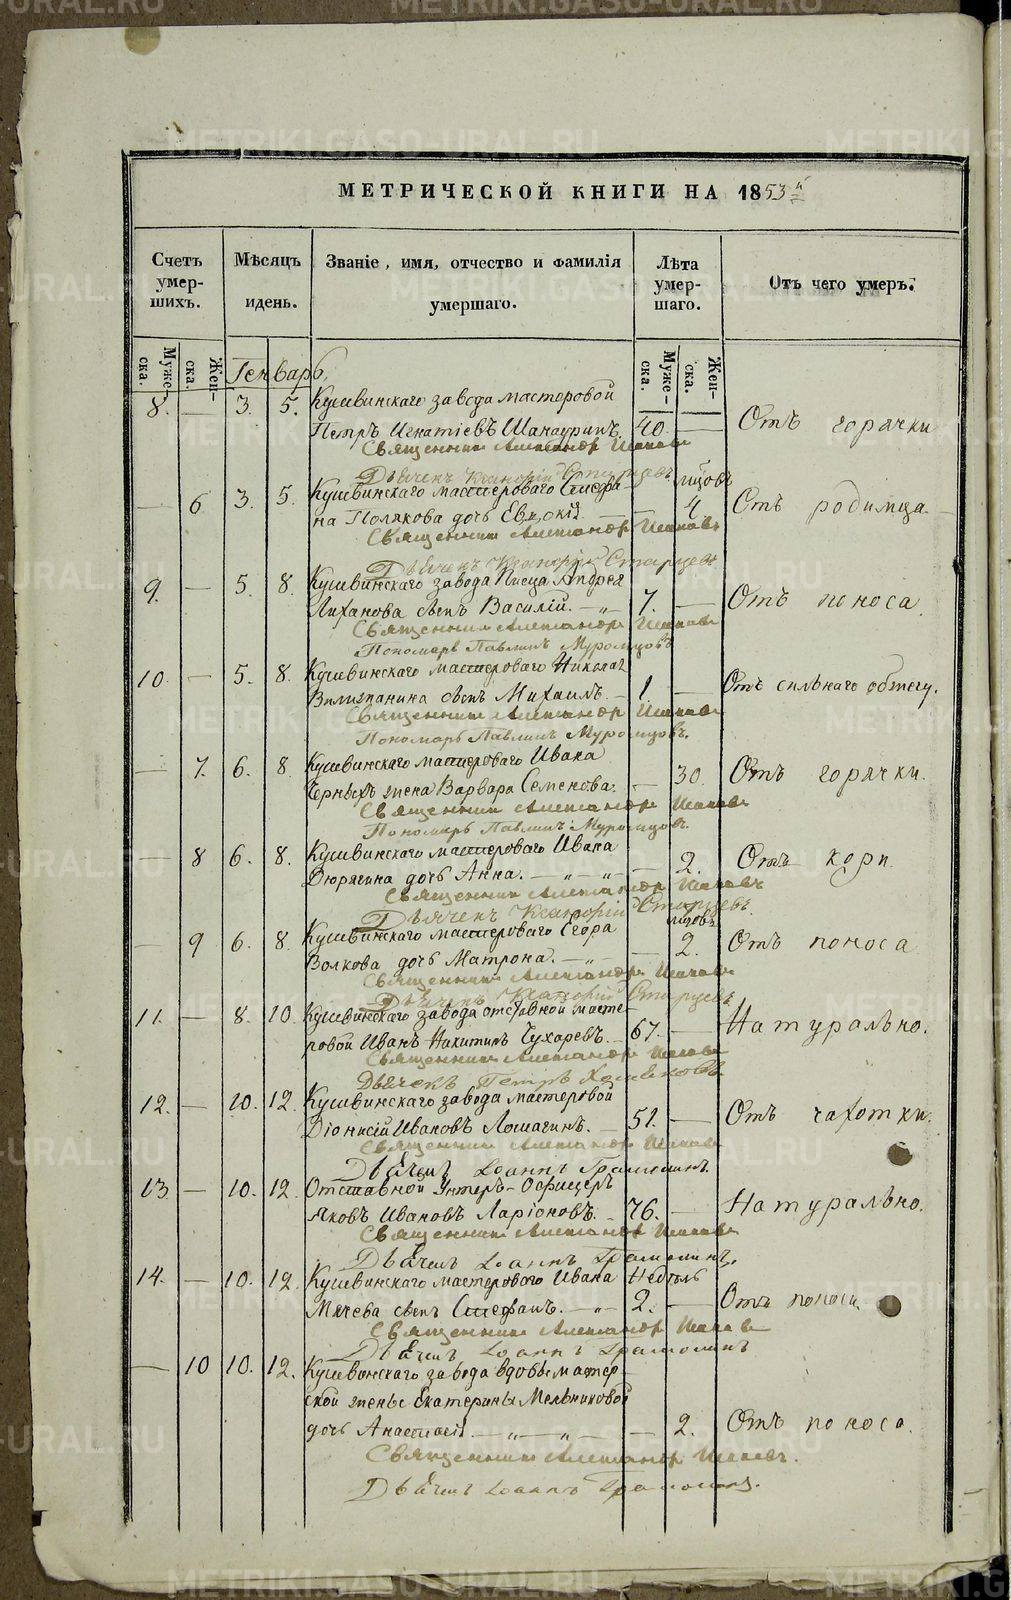 МЕТРИЧЕСКОЙ КНИГИ НА 1853 й
Счетъ умер- шихъ.
Мѣсяцъ иденъ.
Званіе, имя, отчество и фамилія умершаго.
Лѣта умер- шаго.
Отъ чего умеръ.
Муже- ска.
Жен- ска.
Муже- ска.
Жен- ска.
Генварь
8. — 3. 5. Кушвинскаго завода мастеровой
Петръ Игнатіевъ 40. — Отъ горячки
Священникъ Александръ
Дьячекъ
— 6 3. 5. Кушвинскаго мастероваго Стефа
на Полякова дочь — 4 Отъ родимца.
Священникъ Александръ
Дьячекъ Старцевъ
9. — 5. 8. Кушвинскаго завода Писца Андрея
Лиханова сынъ Василій. — „ — 7. — Отъ поноса
Священникъ Александръ
Пономарь Павлинъ Муромцовъ
10. — 5. 8. Кушвинскаго мастероваго Николая
сынъ Михаилъ. — 1. — Отъ сильнаго
Священникъ Александръ
Пономарь Павлинъ Муромцовъ.
— 7. 6. 8 Кушвинскаго мастероваго Ивана
Черныхъ жена Варвара Семенова. — 30. Отъ горячки.
Священникъ Александръ
Пономарь Павлинъ Муромцовъ.
— 8 6. 8. Кушвинскаго мастероваго Ивана
Дюрягина дочь Анна. — „ — „ — — 2. Отъ кори.
Священникъ Александръ
Дьячекъ Старцевъ.
— 9 6. 8. Кушвинскаго мастероваго Егора
Волкова дочь Матрона. — „ — — 2. Отъ поноса
Священникъ Александръ
Дьячекъ Старцевъ
11. — 8. 10. Кушвинскаго завода отставной масте-
ровой Иванъ Никитинъ Чухаревъ. 67. — Натурально.
Священникъ Александръ
Дьячекъ Петръ
12. — 10. 12. Кушвинскаго завода мастеровой
Діонисій Ивановъ Лошагинъ. — 51. — Отъ чахотки.
Священникъ Александръ
Дьячекъ Іоаннъ
13 — 10. 12. Отставной Унтеръ-Офицеръ
Яковъ Ивановъ Ларіоновъ. — 76. — Натурально.
Священникъ Александръ
Дьячекъ Іоаннъ
14. — 10. 12. Кушвинскаго мастероваго Ивана
Мячева сынъ Стефанъ. — „ — 2. — Отъ поноса
Священникъ Александръ
Дьячекъ Іоаннъ
— 10 10. 12. Кушвинскаго завода вдовы мастер-
ской жены Екатерины Мельниковой
дочь Анастасія — „ — „ — — 2. Отъ поноса.
Священникъ Александръ
Дьячекъ Іоаннъ
METRIKI.GASO-URAL.RU